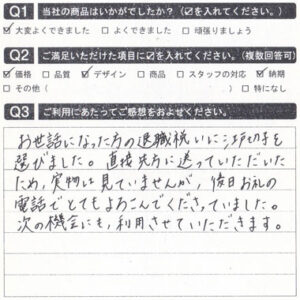 Q1 当社の商品はいかがでしたか?(☑を入れてください。)
☑大変よくできました □よくできました □頑張りましょう
Q2 ご満足いただけた項目に☑を入れてください。(複数回答可)
☑価格 □品質 ☑デザイン □商品 □スタッフの対応 ☑納期
□その他( )□特になし
Q3 ご利用にあたってご感想をおよせください。
お世話になった方の退職祝いに江戸切子を
選びました。直接先方に送っていただいた
ため、実物は見ていませんが、後日お礼の
電話でとてもよろこんでくださっていました。
次の機会にも、利用させていただきます。